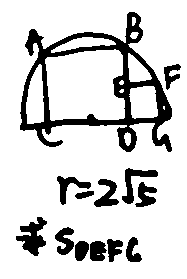 A B
E F
C D G
r=2√5
求 S_DEFG